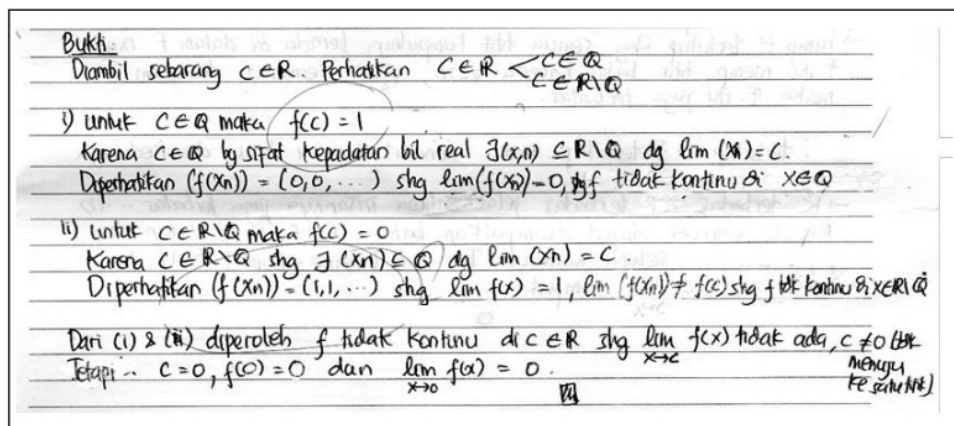 Bukti
Diambil sebarang C∈R. Perhatikan C∈R < C∈Q
C∈R\Q
i) untuk C∈Q maka f(c) = 1
Karena C∈Q by sifat kepadatan bil real ∃(x,n) ⊆ R\Q dg lim (Xn) = C.
Diperhatikan (f(Xn)) = (0,0,...) shg lim(f(Xn)) = 0, f tidak kontinu di X∈Q
ii) untuk C∈R\Q maka f(c) = 0
Karena C∈R\Q shg ∃(Xn) ⊆ Q dg lim (Xn) = C
Diperhatikan (f(Xn)) = (1,1,...) shg lim f(x) = 1, lim (f(Xn)) ≠ f(c) shg f tdk kontinu di X∈R\Q
Dari (i) & (ii) diperoleh f tidak kontinu di C∈R shg lim f(x) tidak ada, C≠0 (tdk
x→c
menuju
ke satu ttk)
Tetapi C=0, f(0) = 0 dan lim f(x) = 0.
x→0